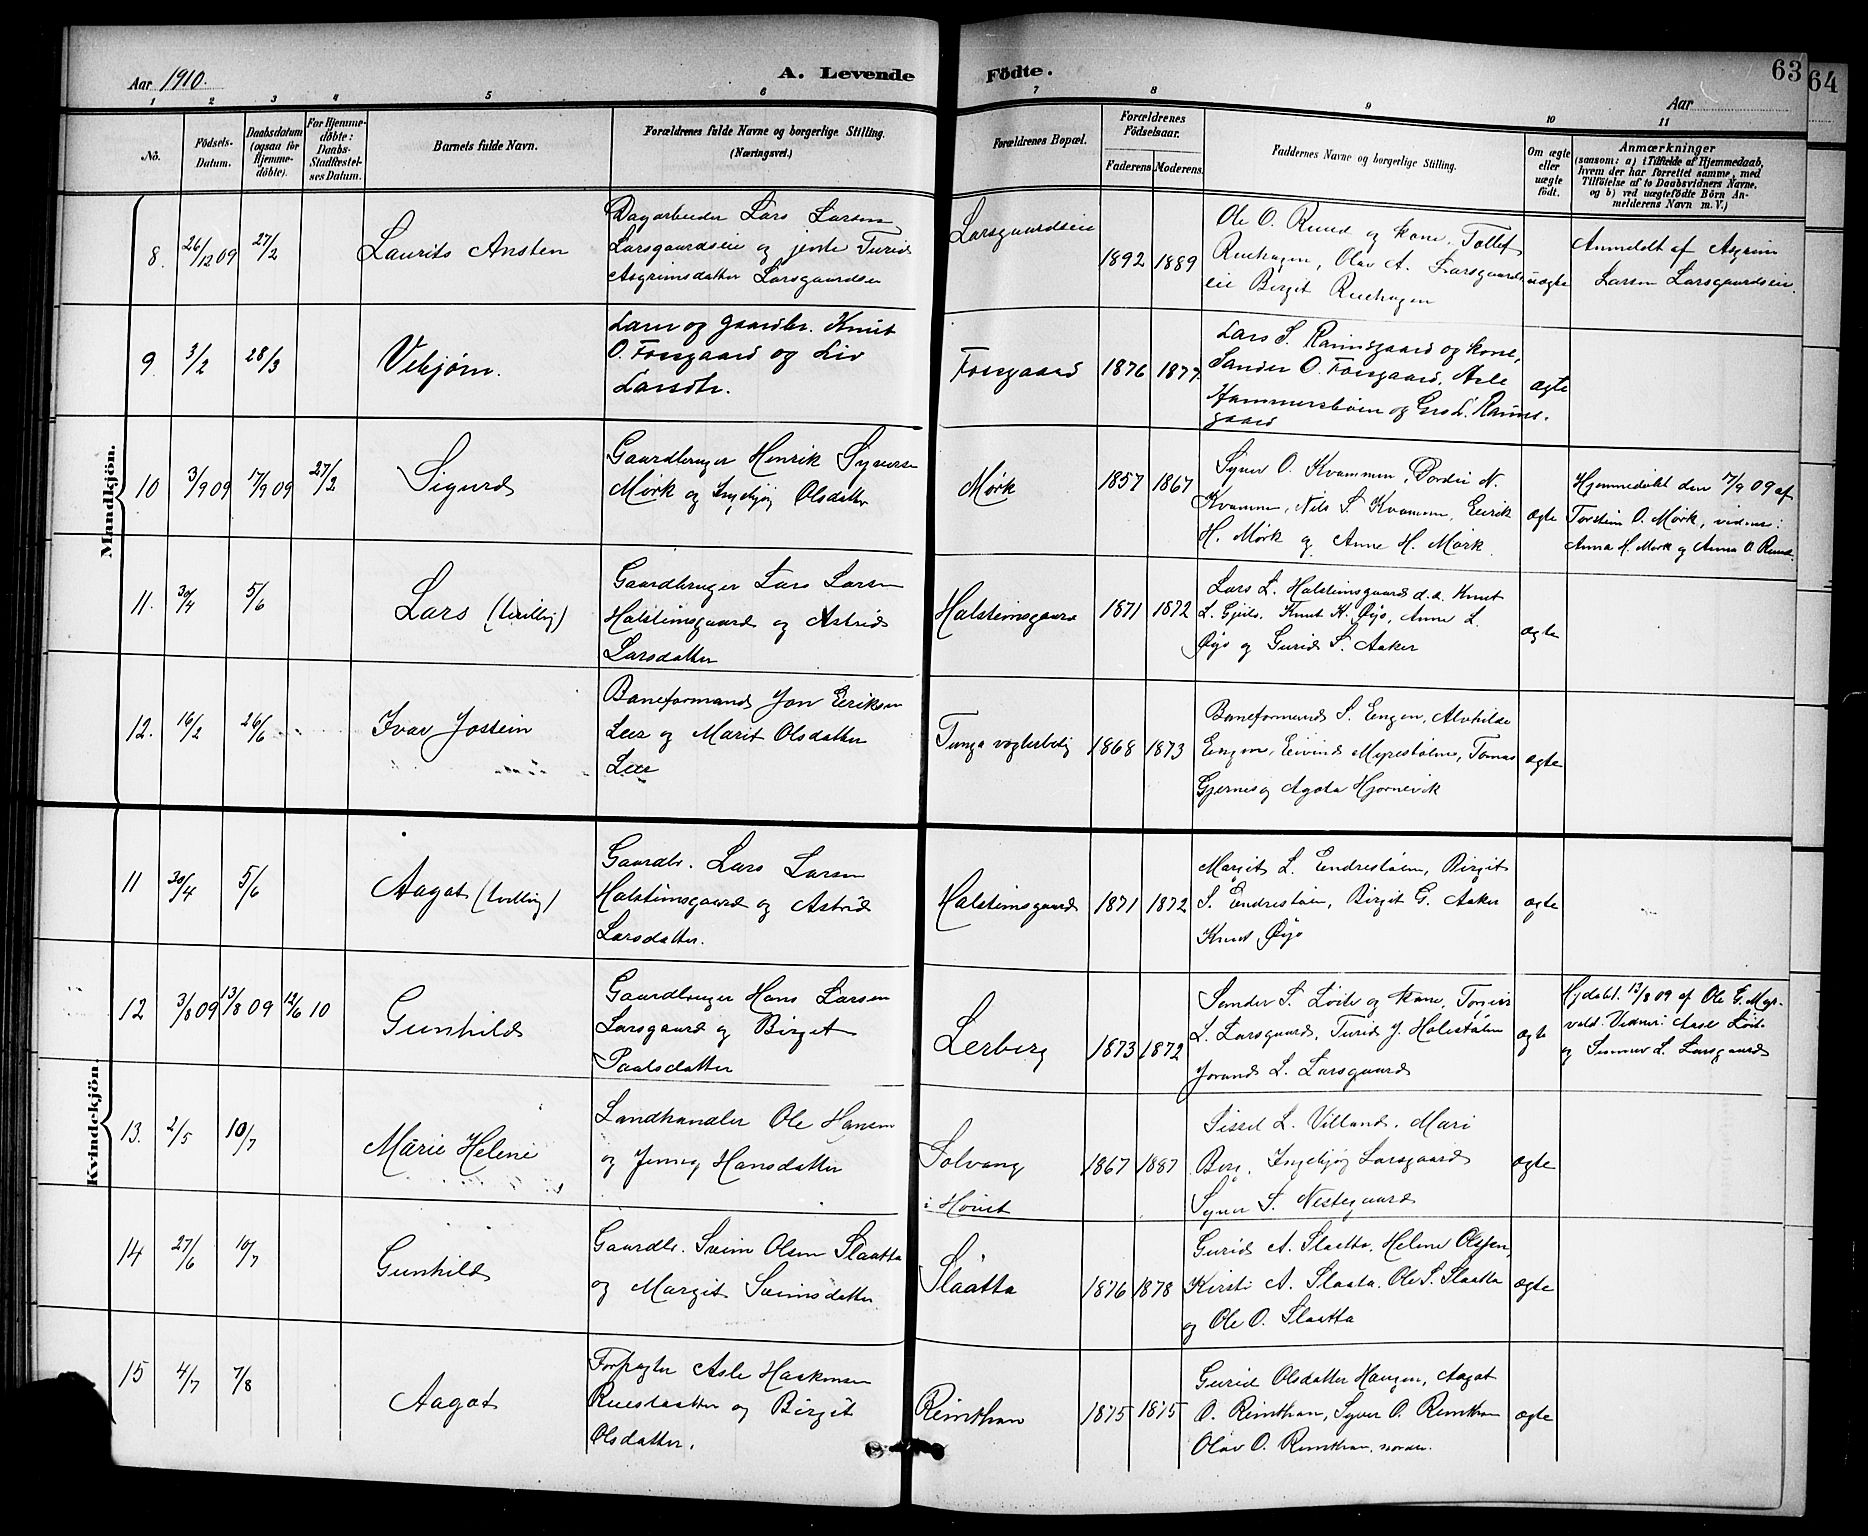 Aar 1910.
A. Levende Födte.
Aar
63
64
1 2 3 4 5 6 7 8 9 10 11
No.
Födsels-
Datum.
Daabsdatum
(ogsaa for
Hjemme-
döbte).
For Hjemme-
döbte:
Daabs-
Stadfæstel-
ses Datum.
Barnets fulde Navn.
Forældrenes fulde Navne og borgerlige Stilling.
(Næringsvei.)
Forældrenes Bopæl.
Forældrenes
Födselsaar.
Faderens Moderens.
Faddernes Navne og borgerlige Stilling.
Om ægte
eller
uægte
født.
Anmærkninger
(saasom: a) i Tilfælde af Hjemmedaab,
hvem der har forrettet samme, med
Tilföielse af to Daabsvidners Navne,
og b) ved uægtefödte Börn An-
melderens Navn m. V.)
Mandkjön.
8. 26/12 09 27/2
Laurits Ansten
Dagarbeider Lars Larsen
Larsgaardseie og jente Turid
Asgrimsdatter Larsgaardseie
Larsgaardseie
1892 1889
Ole O. Ruud og kone, Tollef
Ruehagen, Olav A. Larsgaards-
eie Birgit Ruehagen
uægte
Anmeldt af Asgrim
Larsen Larsgaardseie.
9. 3/2 28/3
Vebjørn.
Lærer og gaardbr. Knut
O. Fossgaard og Liv
Larsdtr.
Fossgaard
1876 1877.
Lars S. Raunsgaard og kone,
Sander O. Fossgaard, Asle
Hammersbøen og Gro L. Rauns-
gaard
ægte
10 3/9 09 17/9 09 27/2
Sigurd
Gaardbruger Henrik Syversen
Mørk og Ingebjør Olsdatter
Mørk
1857 1867
Syver O. Kvammen, Dordei N.
Kvammen, Nils S. Kvammen, Eirik
H. Mørk og Anne H. Mørk.
ægte
Hjemmedøbt den 7/9 09 af
Torstein O. Mørk, vidner:
Anna H. Mørk og Anna O. Ruud.
11. 30/4 5/6
Lars (tvilling)
Gaardbruger Lars Larsen
Halsteinsgaard og Astrid
Larsdatter
Halsteinsgaard
1871 1872
Lars L. Halsteinsgaard d.e. Knut
L. Gjeilo, Knut K. Øijo, Anne L.
Øijo og Gurid S. Aaker
ægte
12. 16/2 26/6
Ivar Jostein
Baneformand Jon Eiriksen
Lær og Marit Olsdatter
Lær
Tunga vogterbolig
1868 1873
Baneformand S. Engen, Alvhilde
Engen, Eivind Myrestølen, Tomas
Gjernes og Agata Hjørnevik
ægte
Kvindekjön.
11 30/4 5/6
Aagot (tvilling)
Gaardbr. Lars Larsen
Halsteinsgaard og Astrid
Larsdatter.
Halsteinsgaard
1871 1872
Margit L. Endrestøien, Birgit
S. Endrestøien, Birgit G. Aaker
Knut Øijo
ægte
12 3/8 09 13/8 09 12/6 10
Gunhild
Gaardbruger Hans Larsen
Larsgaard og Birget
Paalsdatter
Lerberg
1873 1872
Sander S. Løite og kone, Torstein
L. Larsgaard, Turid J. Holestølen
Jorand L. Larsgaard
ægte
Hjdøbt. 13/8 09 af Ole E. Myr-
vold. Vidner: Aase Løite
og Simmer L. Larsgaard
13. 2/5 10/7
Marie Helene
Landhandler Ole Hansen
og Jenny Hansdatter
Solvang
i Hovet
1867 1887
Sissel L. Villand. Mari
Berg, Ingebjør Larsgaard
Syver S. Nestegaard
ægte
14 27/6 10/7
Gunhild
Gaardbr. Svein Olsen Slaatta
og Margit Sveinsdatter
Slaatta
1876 1878
Gurid A. Slaatta, Helene Olsen,
Kirsti A. Slaata. Ole S. Slaatta
og Ole O. Slaatta
ægte
15 4/7 7/8
Aagot
Forpagter Asle Haakonsen
Rueslaatten og Birgit
Olsdatter.
Reinthan
1875 1875
Gurid Olsdatter Haugen, Aagot
O. Reinthan, Syver O. Reinthan
Olav O. Reinthan, nordre.
ægte